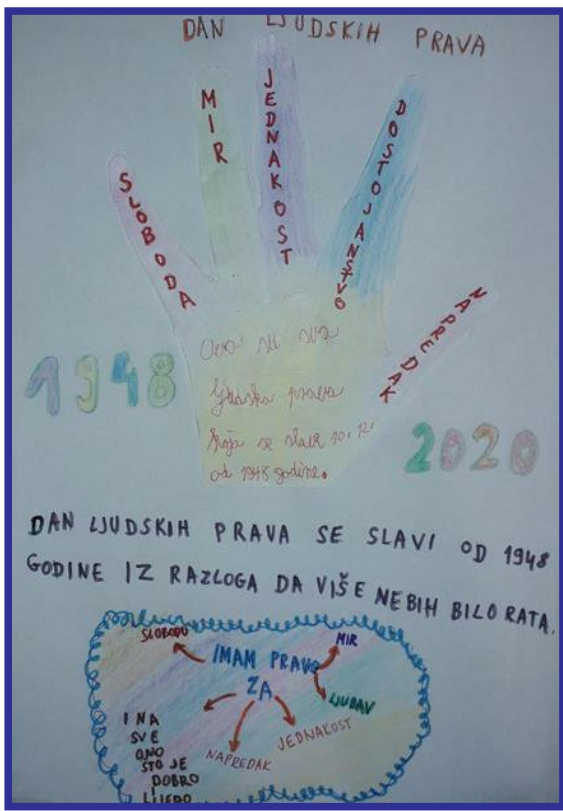 DAN LJUDSKIH PRAVA
SLOBODA
MIR
JEDNAKOST
DOSTOJANSTVO
NAPREDAK
1948
2020
Ovo su sva
ljudska prava
koja se slave 10.12.
od 1948 godine.
DAN LJUDSKIH PRAVA SE SLAVI OD 1948
GODINE IZ RAZLOGA DA VIŠE NEBIH BILO RATA.
SLOBODU
IMAM PRAVO
ZA
MIR
LJUBAV
JEDNAKOST
NAPREDAK
I NA
SVE
ONO
ŠTO JE
DOBRO
I
LIJEPO